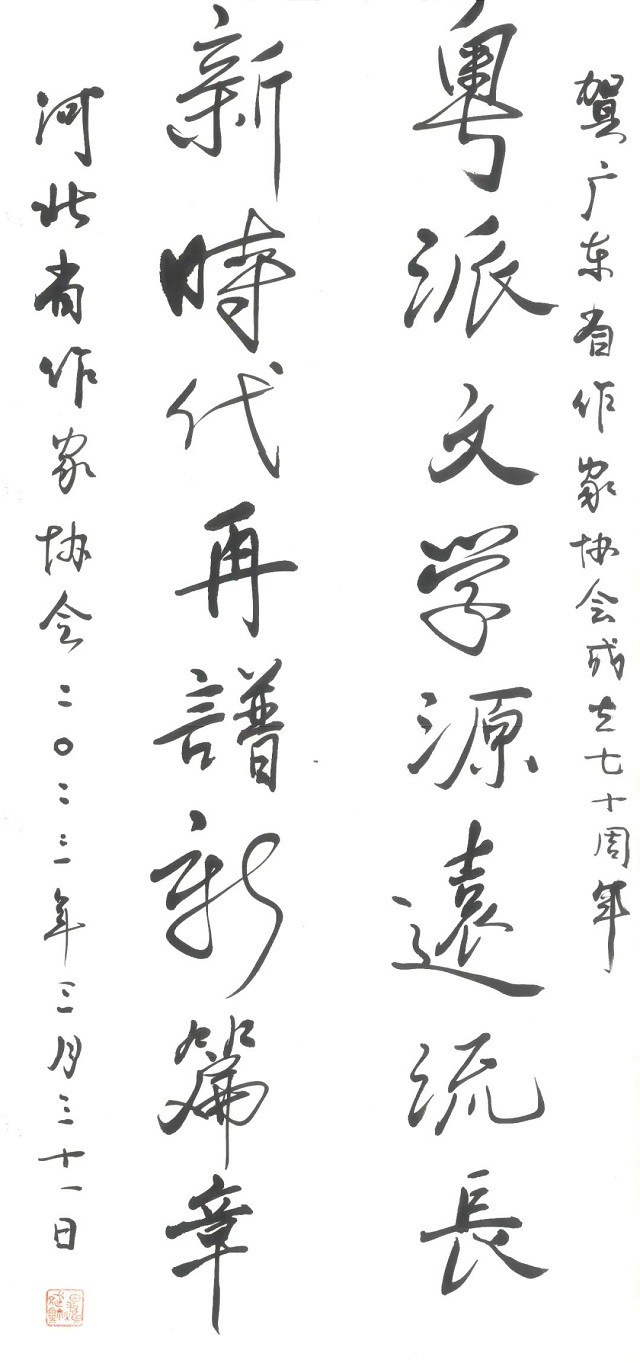 贺广东省作家协会成立七十周年
粤派文学源遠流長
新時代再譜新篇章
河北省作家协会二〇二三年三月三十一日